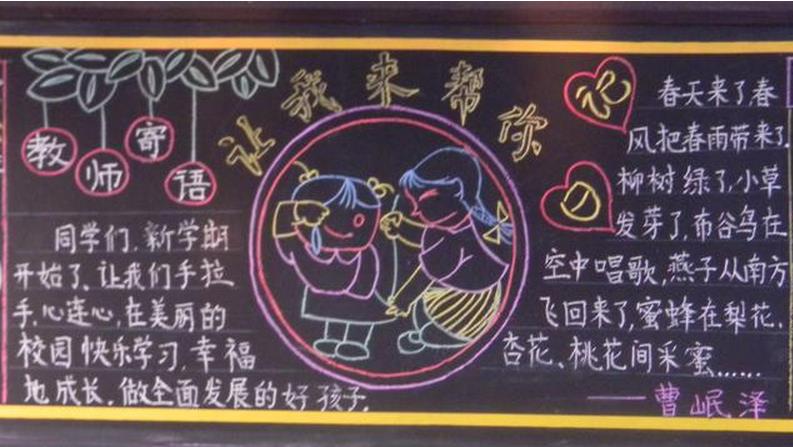 教师寄语
让我来帮你
同学们,新学期
开始了,让我们手拉
手,心连心,在美丽的
校园快乐学习,幸福
地成长.做全面发展的好孩子.
日记
春天来了,春
风把春雨带来了.
柳树绿了,小草
发芽了,布谷鸟在
空中唱歌,燕子从南方
飞回来了,蜜蜂在梨花、
杏花、桃花间采蜜……
——曹岷泽